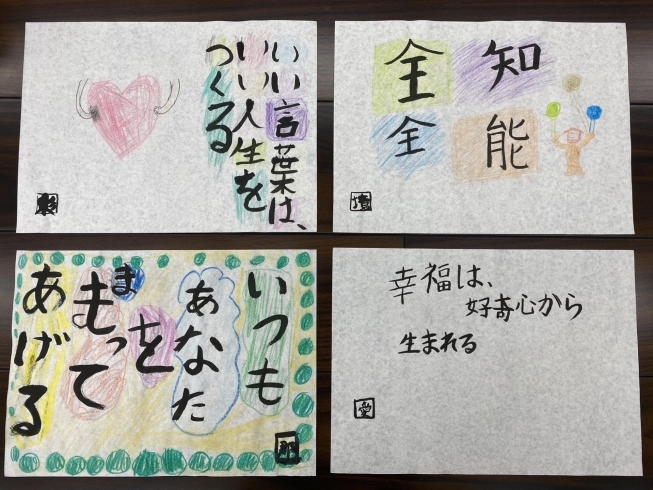 いい言葉は、
いい人生を
つくる
全知
全能
いつも
あなた
を
まもって
あげる
幸福は、
好奇心から
生まれる
愛